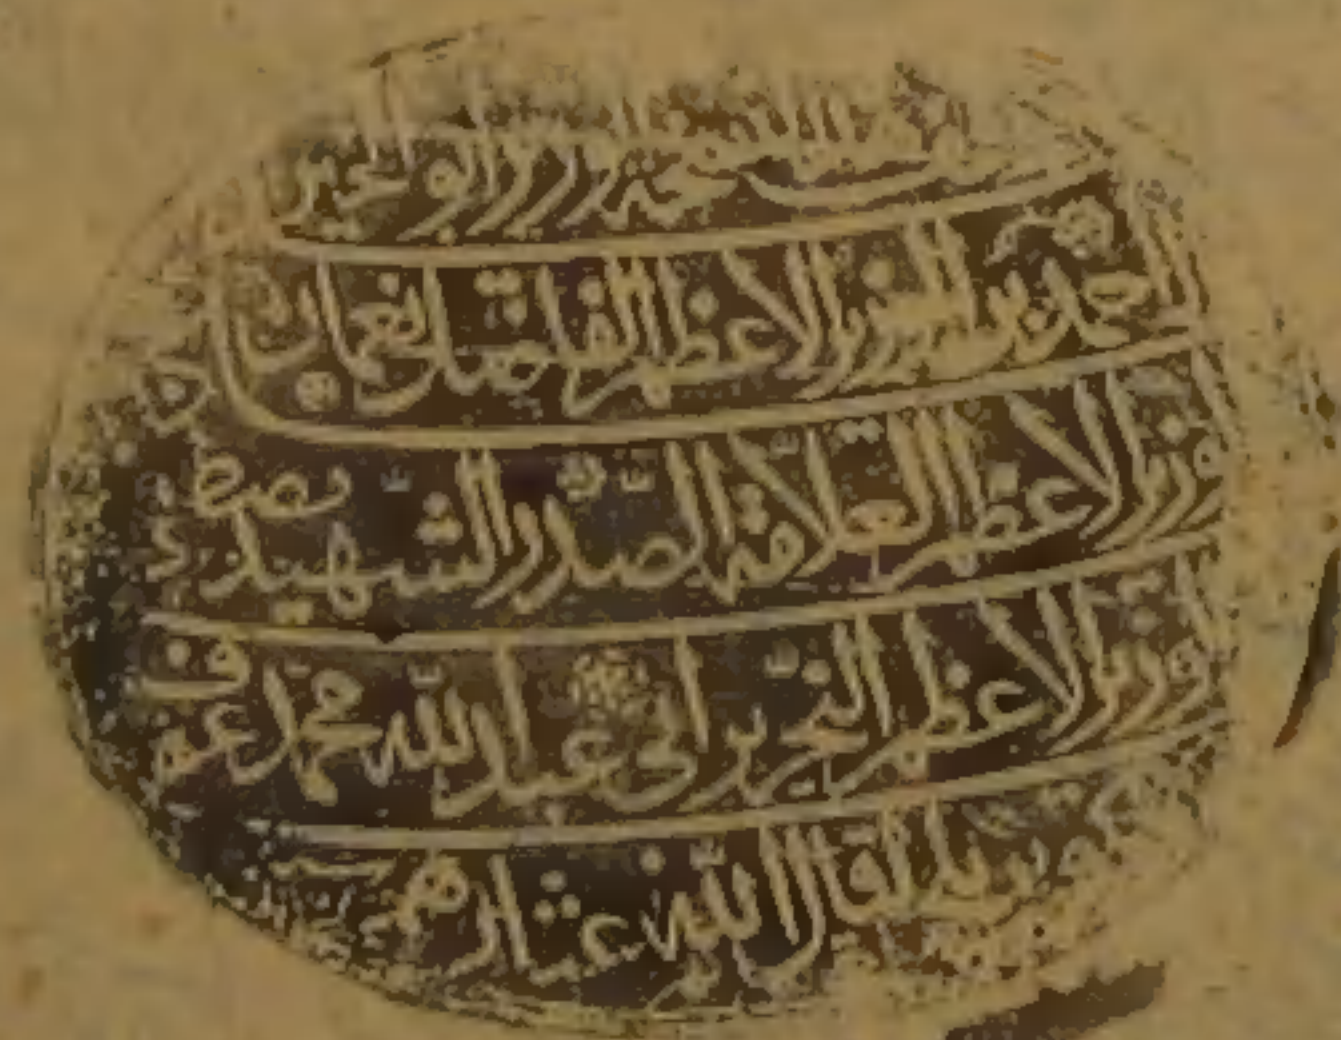 الوزير ابو الخير
احمد بن الوزير الاعظم الفاضل نعمان بن
وزير الاعظم العلامة الصدر الشهيد مصطفى بن
وزير الاعظم النحرير ابى عبد الله محمد عرف
بكوبريلى اقال الله عثارهم